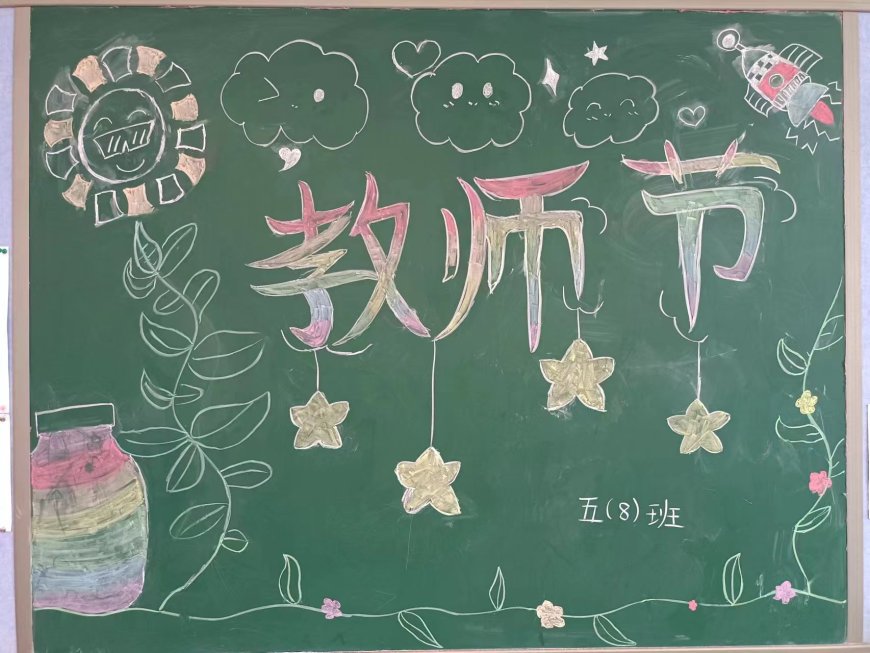 教师节
五(8)班